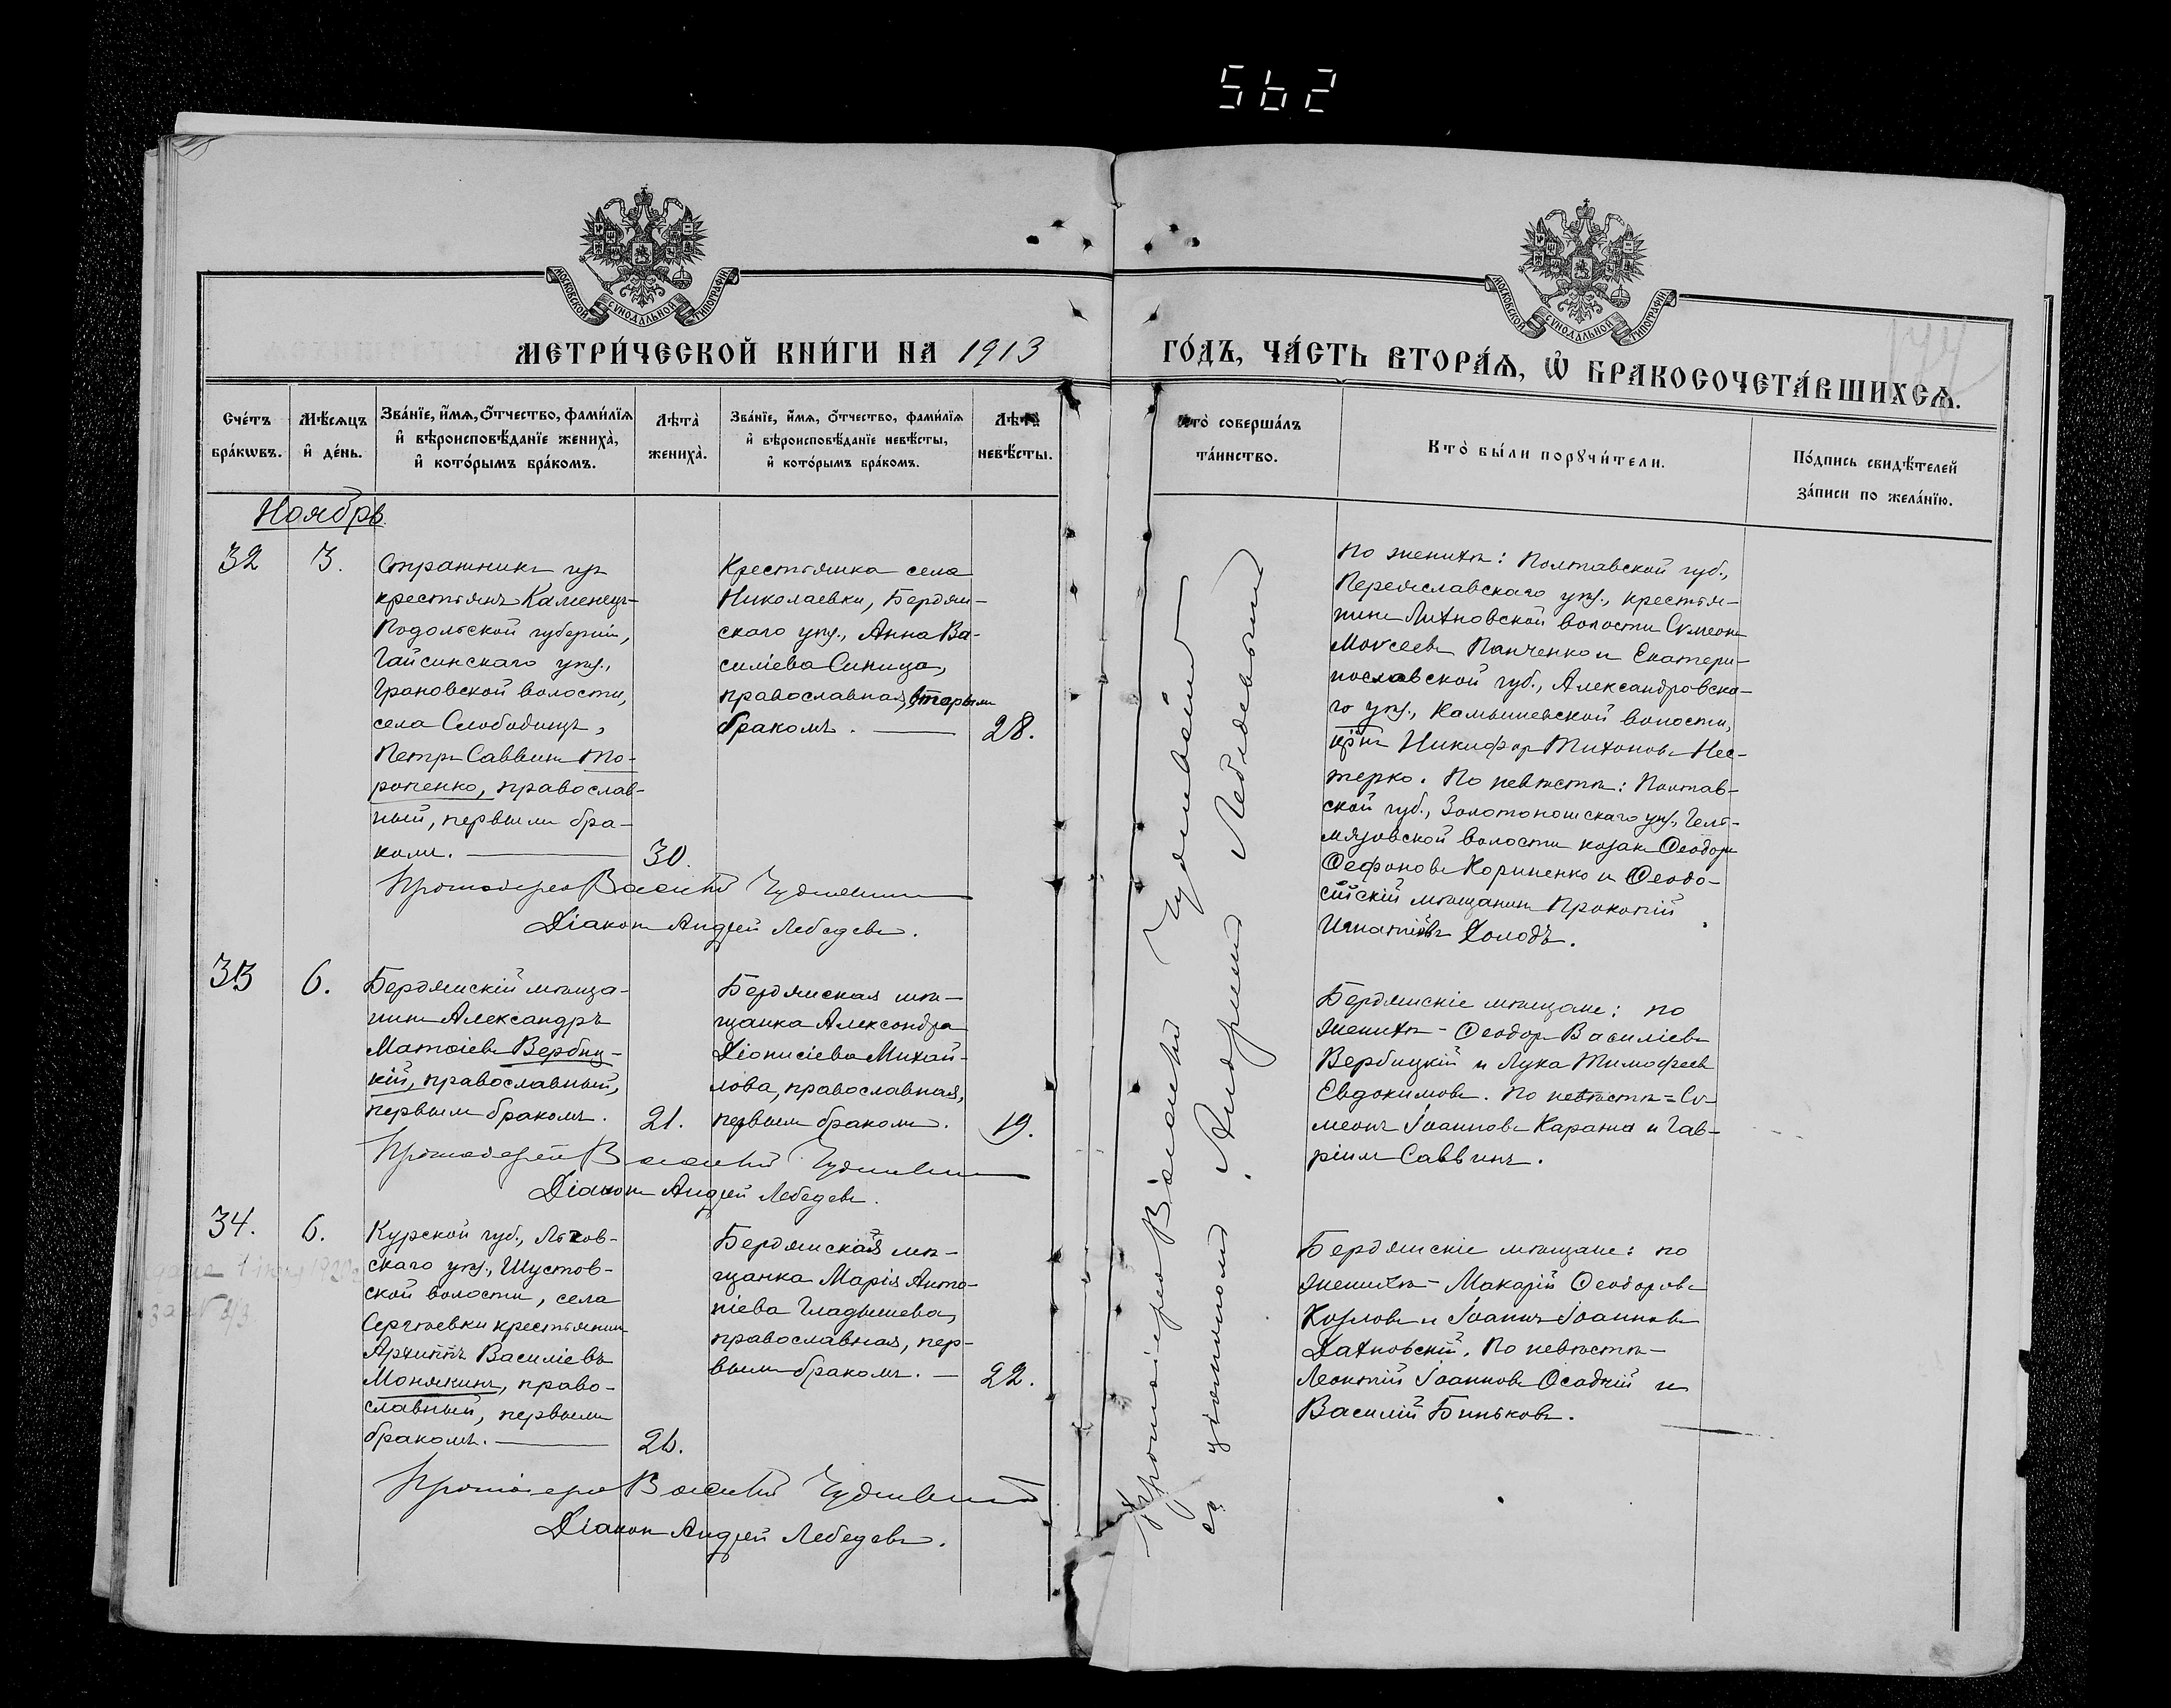 562
МОСКОВСКОЙ СѴНОДАЛЬНОЙ ТИПОГРАФІИ
МОСКОВСКОЙ СѴНОДАЛЬНОЙ ТИПОГРАФІИ
МЕТРИ́ЧЕСКОЙ КНИ́ГИ НА 1913
ГО́ДЪ, ЧА́СТЬ ВТОРА́Ѧ, Ѡ БРАКОСОЧЕТА́ВШИХСѦ.
Сче́тъ бра́кѡвъ.
Мѣ́сѧцъ и҆ де́нь.
Зва́нїе, и҆́мѧ, ѻ҆́тчество, фами́лїѧ
и҆ вѣроисповѣ́данїе жениха̀,
и҆ кото́рымъ бра́комъ.
Лѣта̀ жениха̀.
Зва́нїе, и҆́мѧ, ѻ҆́тчество, фами́лїѧ
и҆ вѣроисповѣ́данїе невѣ́сты,
и҆ кото́рымъ бра́комъ.
Лѣта̀ невѣ́сты.
Кто̀ соверша́лъ та́инство.
Кто̀ бы́ли порꙋчи́тели.
По́дпись свидѣ́телей
за́писи по жела́нїю.
Ноябрь
32
3.
Стражникъ изъ
крестьянъ Каменецъ-
Подольской губерніи,
Гайсинскаго уѣз.,
Грановской волости,
села Слободищъ,
Петръ Саввинъ То-
ропенко, православ-
ный, первымъ бра-
комъ.
30.
Крестьянка села
Николаевки, Бердян-
скаго уѣз., Анна Ва-
силіева Синица,
православная, вторымъ
бракомъ.
28.
По женихѣ: Полтавской губ.,
Переяславскаго уѣз., крестья-
нинъ Лихновской волости Сѵмеонъ
Моѵсеевъ Панченко и Екатери-
нославской губ., Александровска-
го уѣз., Камышевской волости,
кр-нъ Никифоръ Тихоновъ Нес-
терко. По невѣстѣ: Полтав-
ской губ., Золотоношскаго уѣз., Гель-
мязовской волости козакъ Ѳеодоръ
Кориненко и Ѳеодо-
сійскій мѣщанинъ Прокопій
Игнатіевъ Холодъ.
Протоіерей Василій
Діаконъ Андрей Лебедевъ.
33
6.
Бердянскій мѣща-
нинъ Александръ
Матѳіевъ Вербиц-
кій, православный,
первымъ бракомъ.
21.
Бердянская мѣ-
щанка Александра
Діонисіева Михай-
лова, православная,
первымъ бракомъ.
19.
Бердянскіе мѣщане: по
женихѣ - Ѳеодоръ Василіевъ
Вербицкій и Лука Тимофеевъ
Евдокимовъ. По невѣстѣ = Сѵ-
меонъ Іоанновъ Каранда и Гав-
ріилъ Саввинъ.
Протоіерей Василій
Діаконъ Андрей Лебедевъ.
34.
6.
Курской губ., Льгов-
скаго уѣз., Шустов-
ской волости, села
Сергѣевки крестьянинъ
Архиппъ Василіевъ
Монякинъ, право-
славный, первымъ
бракомъ.
26.
Бердянская мѣ-
щанка Марія Анто-
ніева Гладышева,
православная, пер-
вымъ бракомъ.
22.
Бердянскіе мѣщане: по
женихѣ - Макарій Ѳеодоровъ
Козловъ и Іоаннъ Іоанновъ
Дахновскій. По невѣстѣ -
Леонтій Іоанновъ Осадчій и
Василій Биньковъ.
Протоіерей Василій
Діаконъ Андрей Лебедевъ.
Протоіерей Василій
съ діакономъ Андреемъ Лебедевымъ